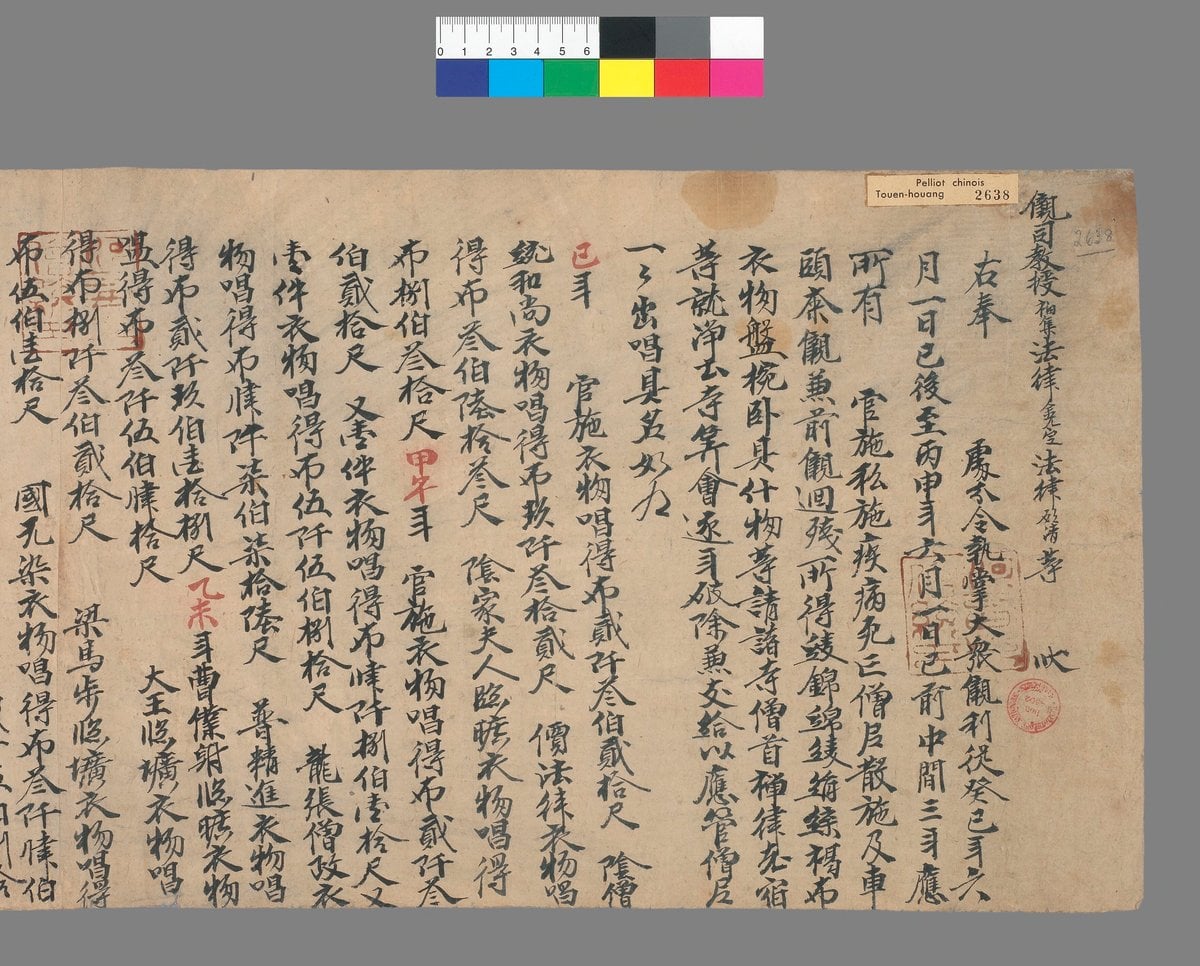 Pelliot chinois
Touen-houang 2638
2638
0 1 2 3 4 5 6
儭司教授福集法律金光定法律願清等 狀
右奉 處分令執掌大衆儭利從癸巳年六
月一日已後至丙申年六月一日已前中間三年應
所有 官施私施疾病死亡僧尼散施及車
頭齋儭兼前儭迴殘所得綾錦綿綾絹緤褐布
衣物盤椀卧具什物等請諸寺僧首禪律老宿
等就淨土寺筭會逐年破除兼支給以應管僧尼
一々出唱具名如右
巳年 官施衣物唱得布貳阡叁伯貳拾尺 陰僧
統和尚衣物唱得布玖阡叁拾貳尺 價法律衣物唱
得布叁伯陸拾叁尺 陰家夫人臨壙衣物唱得
布捌伯叁拾尺 甲午年 官施衣物唱得布貳阡叁
伯貳拾尺 又壹件衣物唱得布肆阡捌伯壹拾尺又
壹件衣物唱得布伍阡伍伯捌拾尺 龍張僧政衣
物唱得布肆阡柒伯柒拾陸尺 普精進衣物唱
得布貳阡玖伯壹拾捌尺 乙未年曹僕射臨壙衣物
唱得布叁阡伍伯肆拾尺 大王臨壙衣物唱
得布捌阡叁伯貳拾尺 梁馬步臨壙衣物唱得
布伍伯壹拾尺 國无染衣物唱得布叁阡肆伯